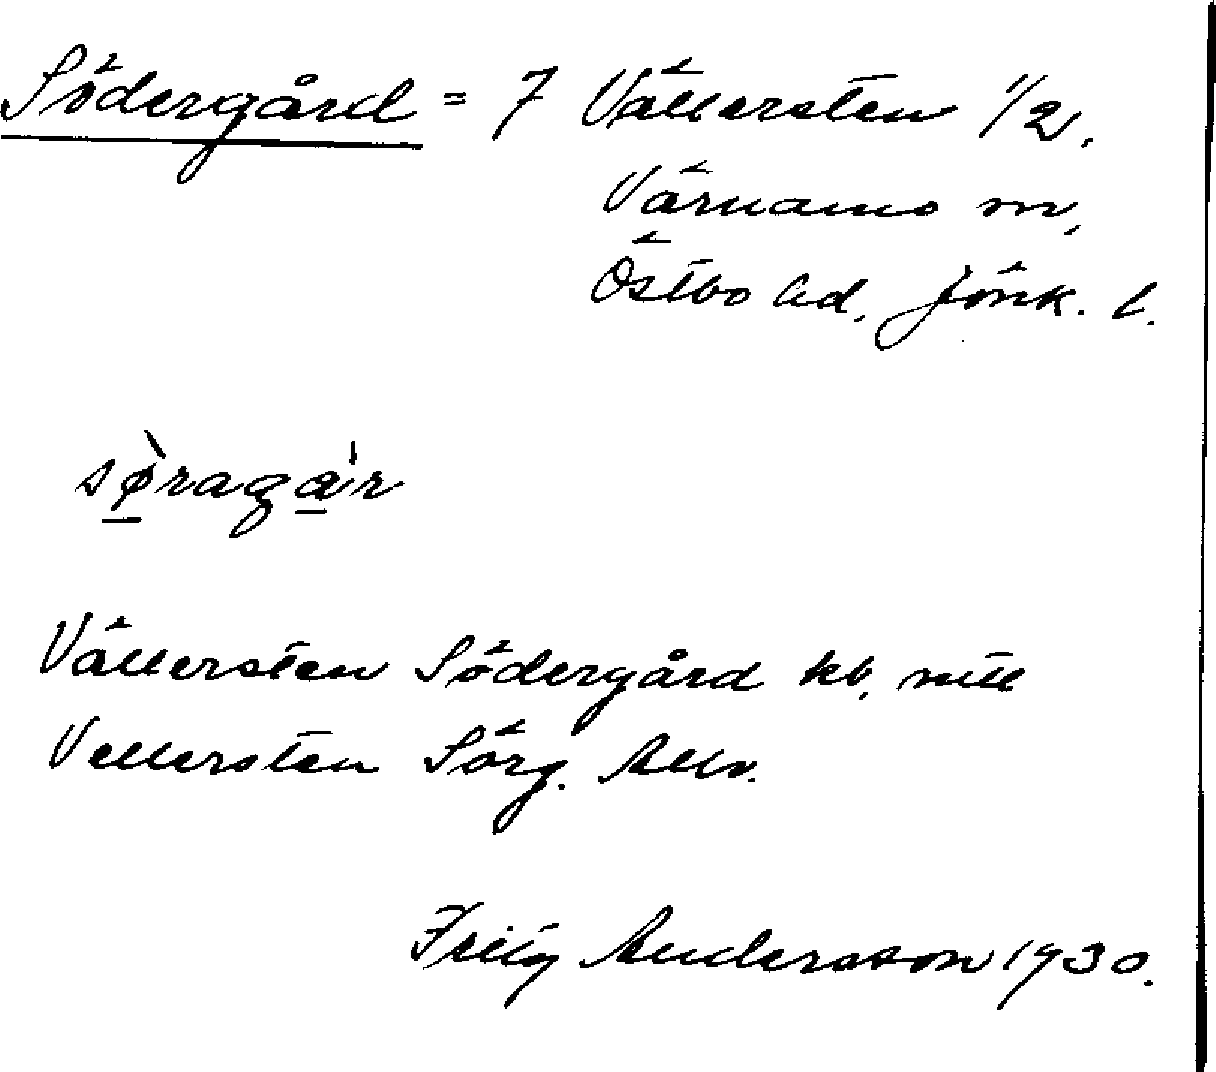 Södergård = 7 Vällersten 1/2.
Värnamo sn,
Östbo hd, Jönk. l.
sø̀ragár
Vällersten Södergård kb, mtl
Vellersten Sörg. Allm.
Fritz Andersson 1930.